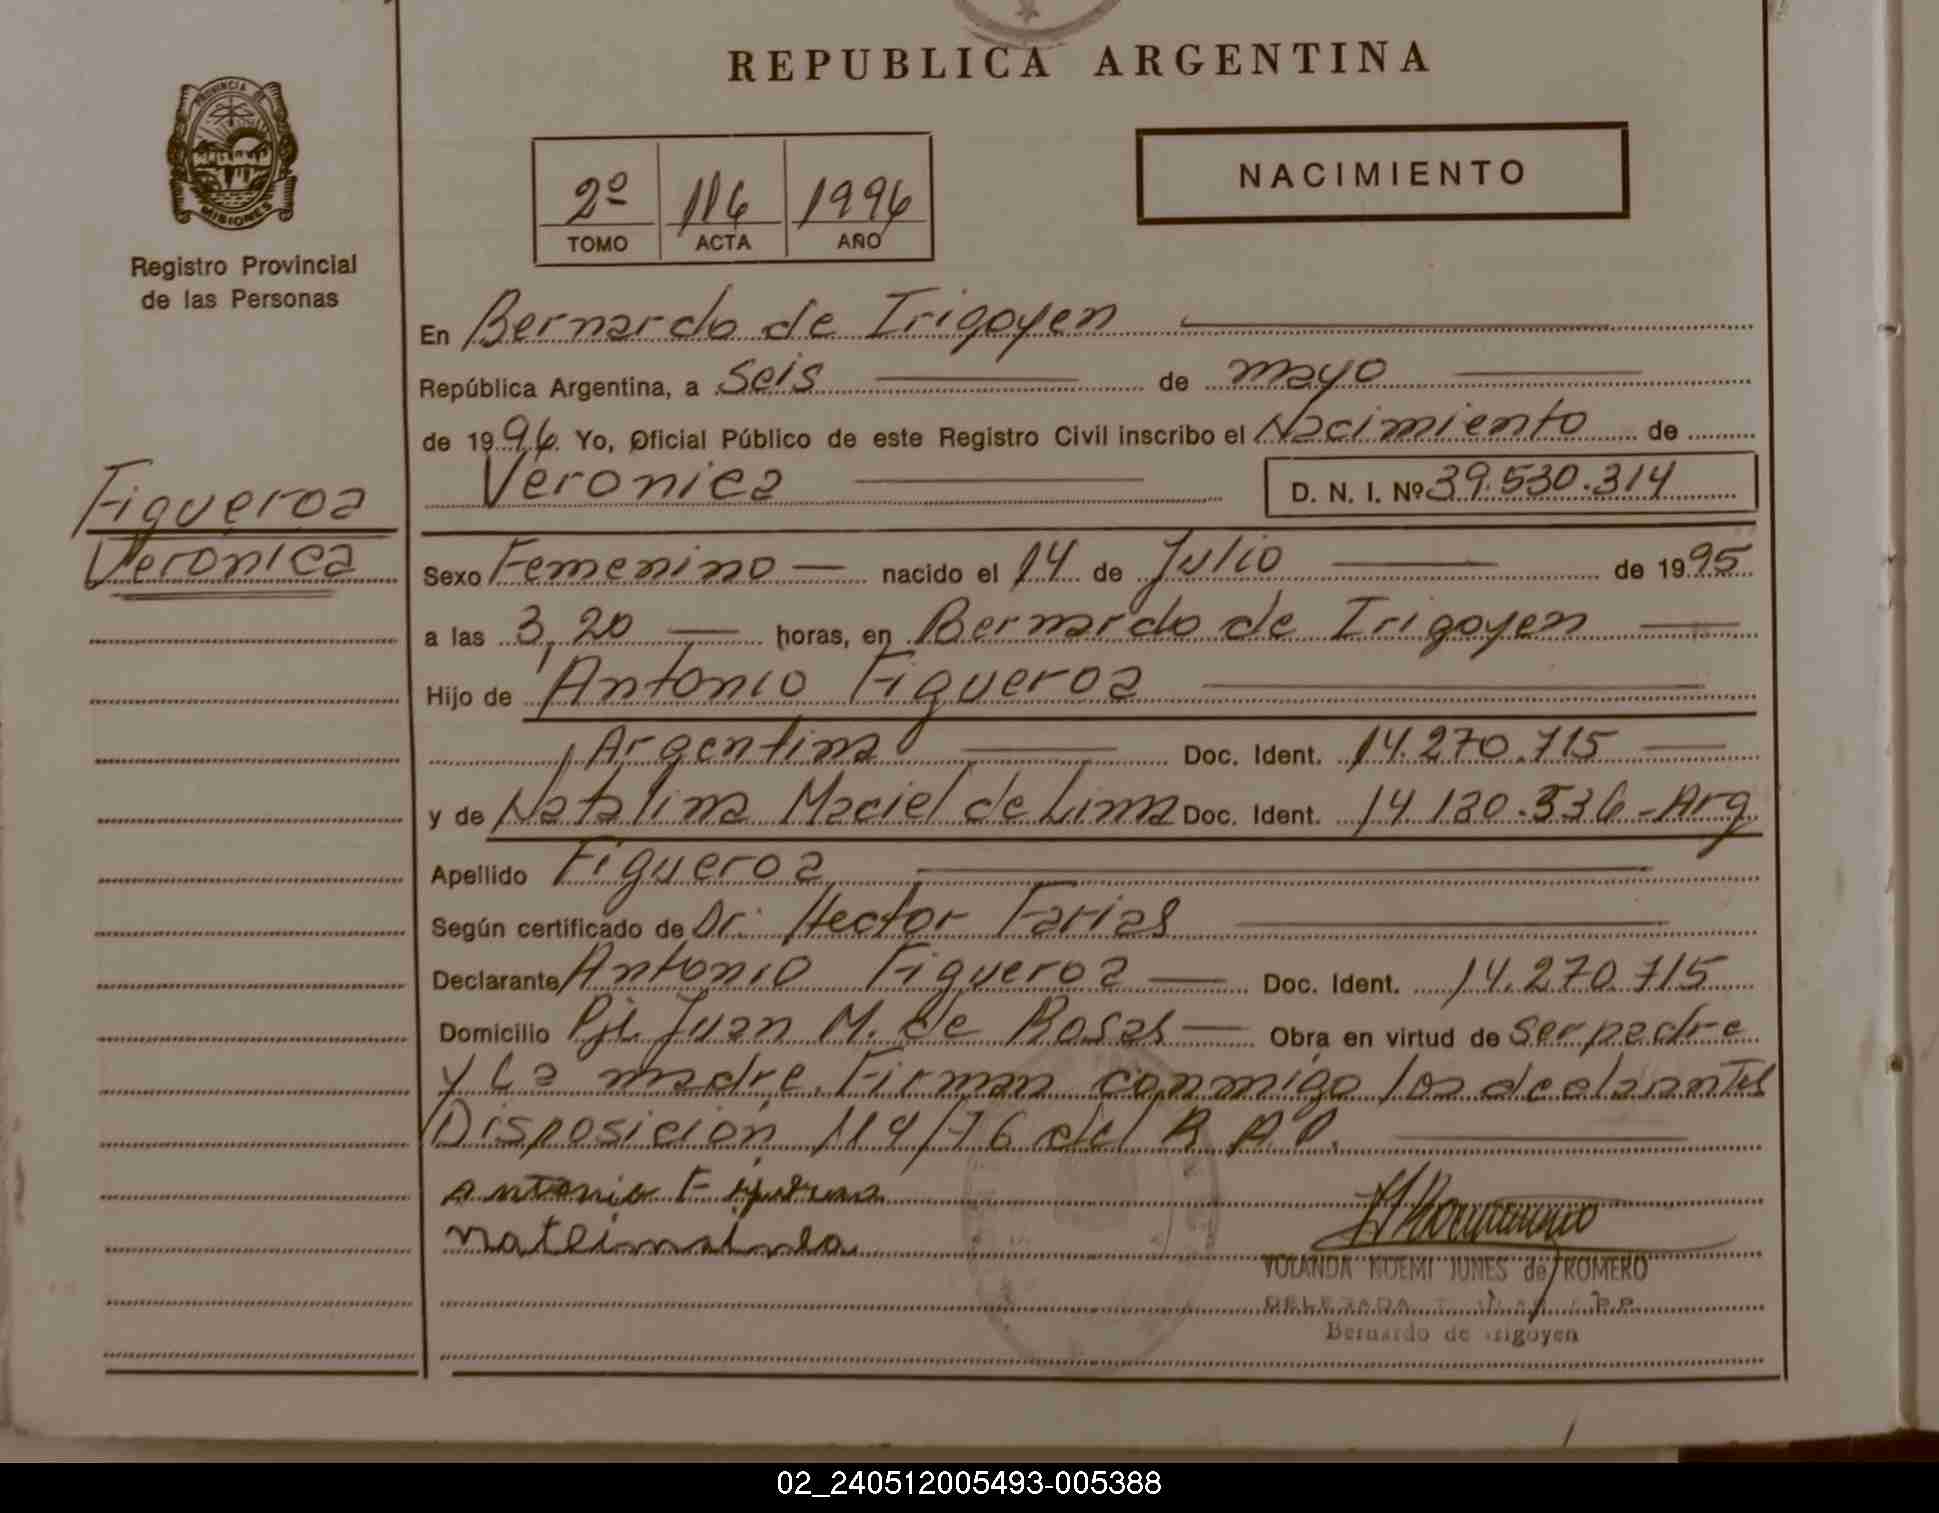 REPUBLICA ARGENTINA
PROVINCIA DE
MISIONES
Registro Provincial
de las Personas
2º 116 1996
TOMO ACTA AÑO
NACIMIENTO
En Bernardo de Irigoyen
República Argentina, a Seis de mayo
de 1996. Yo, Oficial Público de este Registro Civil inscribo el Nacimiento de
Veronica D. N. I. Nº 39.530.314
Figueroa
Verónica
Sexo Femenino nacido el 14 de Julio de 1995
a las 3,20 horas, en Bernardo de Irigoyen
Hijo de Antonio Figueroa
Argentina Doc. Ident. 14.270.715
y de Natalina Maciel de Lima Doc. Ident. 14.130.536-Arg
Apellido Figueroa
Según certificado de Dr. Hector Farias
Declarante Antonio Figueroa Doc. Ident. 14.270.715
Domicilio Pje. Juan M. de Rosas Obra en virtud de Ser padre
y La madre. Firman conmigo los declarantes
Disposición 114/76 del R.P.P.
Antonio Figueroa
YOLANDA NOEMI JUNES de ROMERO
DELEGADA
Bernardo de Irigoyen
02_240512005493-005388